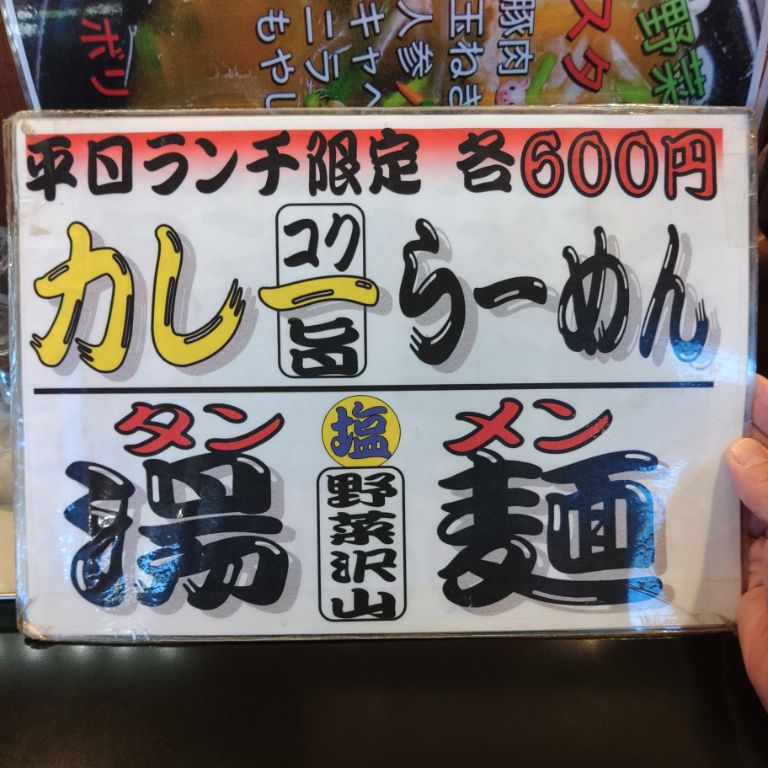 平日ランチ限定 各600円
コク旨
カレーらーめん
タン 塩 メン
湯 野菜沢山 麺
野菜
スタ
豚肉
玉ねぎ
人参
キャベ
ニラ
もやし
ボリ